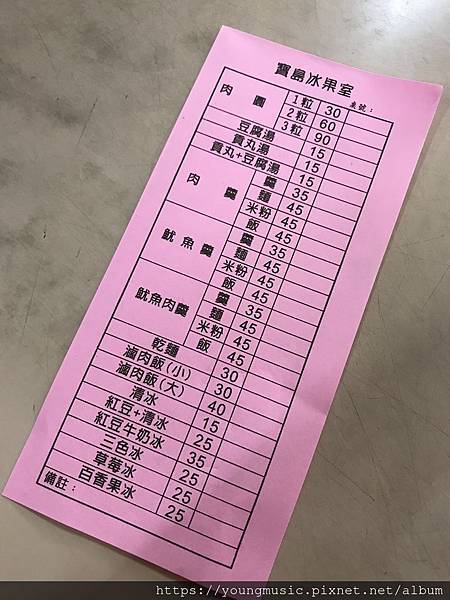 寶島冰果室
桌號：
肉圓 1粒 30
2粒 60
3粒 90
豆腐湯 15
貢丸湯 15
貢丸+豆腐湯 15
肉羹 羹 35
麵 45
米粉 45
飯 45
魷魚羹 羹 35
麵 45
米粉 45
飯 45
魷魚肉羹 羹 35
麵 45
米粉 45
飯 45
乾麵 30
滷肉飯(小) 30
滷肉飯(大) 40
清冰 15
紅豆+清冰 25
紅豆牛奶冰 35
三色冰 25
草莓冰 25
百香果冰 25
備註：
https://youngmusic.pixnet.net/album